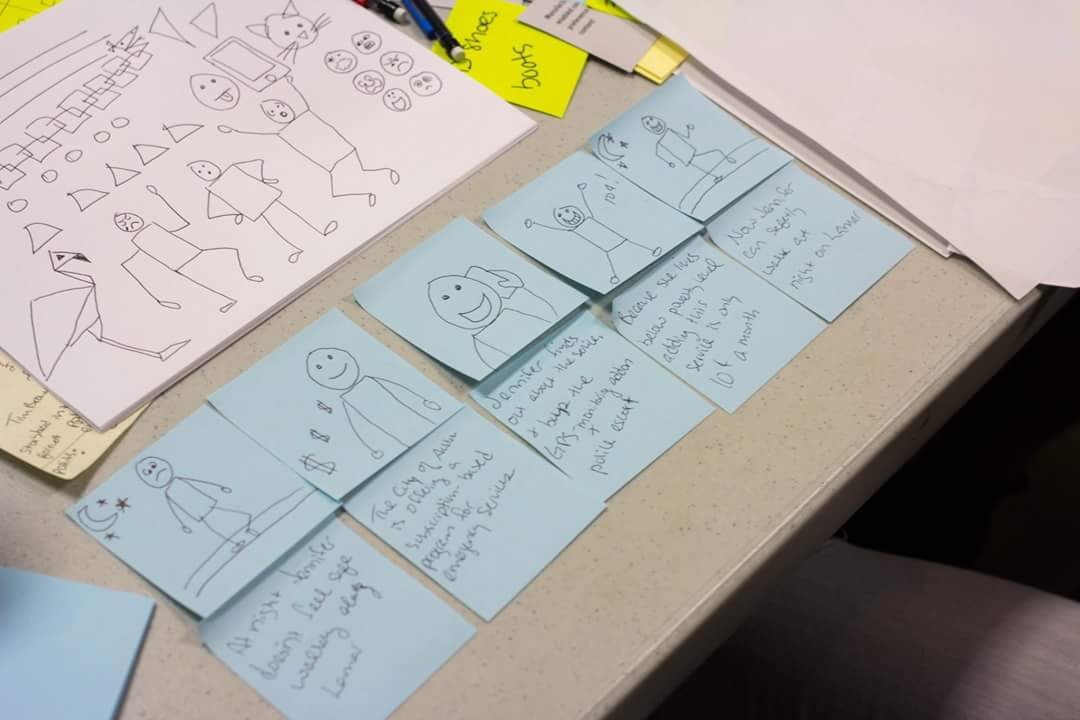 shoes
boots
10¢!
$
$
$
At night Jennifer
doesn't feel safe
walking along
Lamar
The City of Austin
is offering a
subscription based
program for
emergency services
Jennifer finds
out about the service
& buys the
GPS monitoring option
+
police escort
Because she lives
below poverty level
adding this
service is only
10¢ a month
Now Jennifer
can safely
walk at
night on Lamar